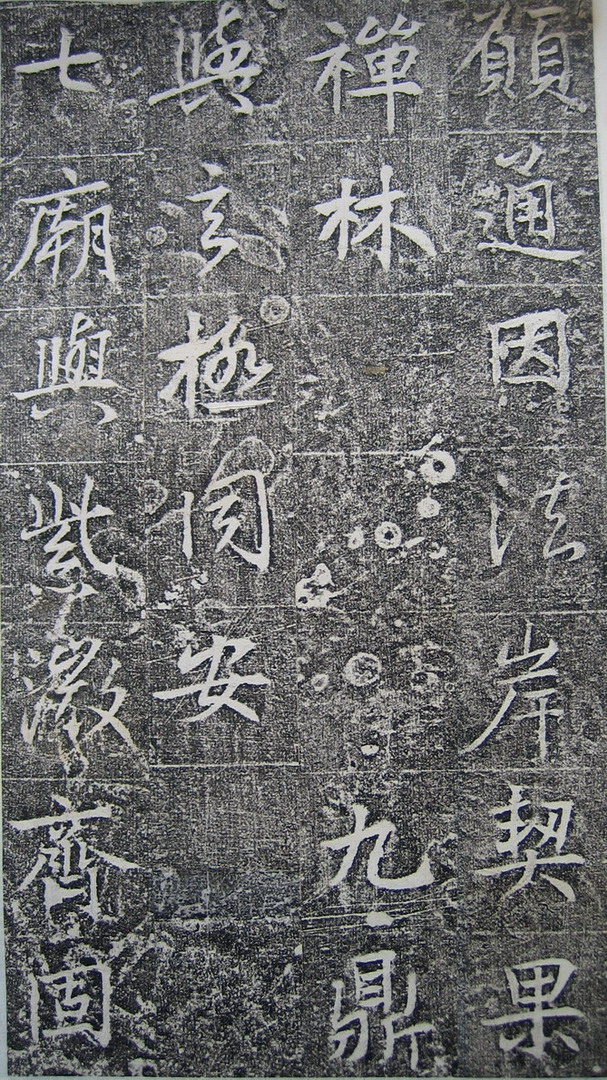 願通因法岸契果
禪林九鼎
與玄極同安
七廟與紫微齊固